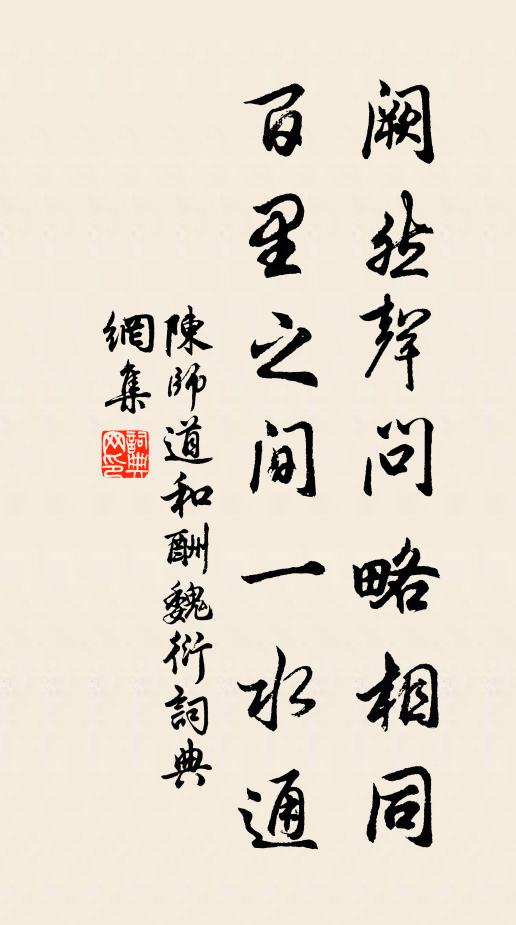 阙然聲问略相同
百里之间一水通
陳師道和酬魏衍詞典
網集
詞典
网印